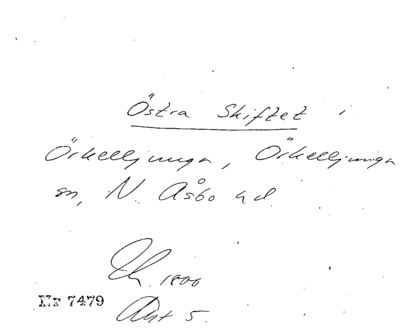 Östra Skiftet i
Örkelljunga, Örkelljunga
sn, N. Åsbo hd.
1800
Nr 7479
Akt 5.